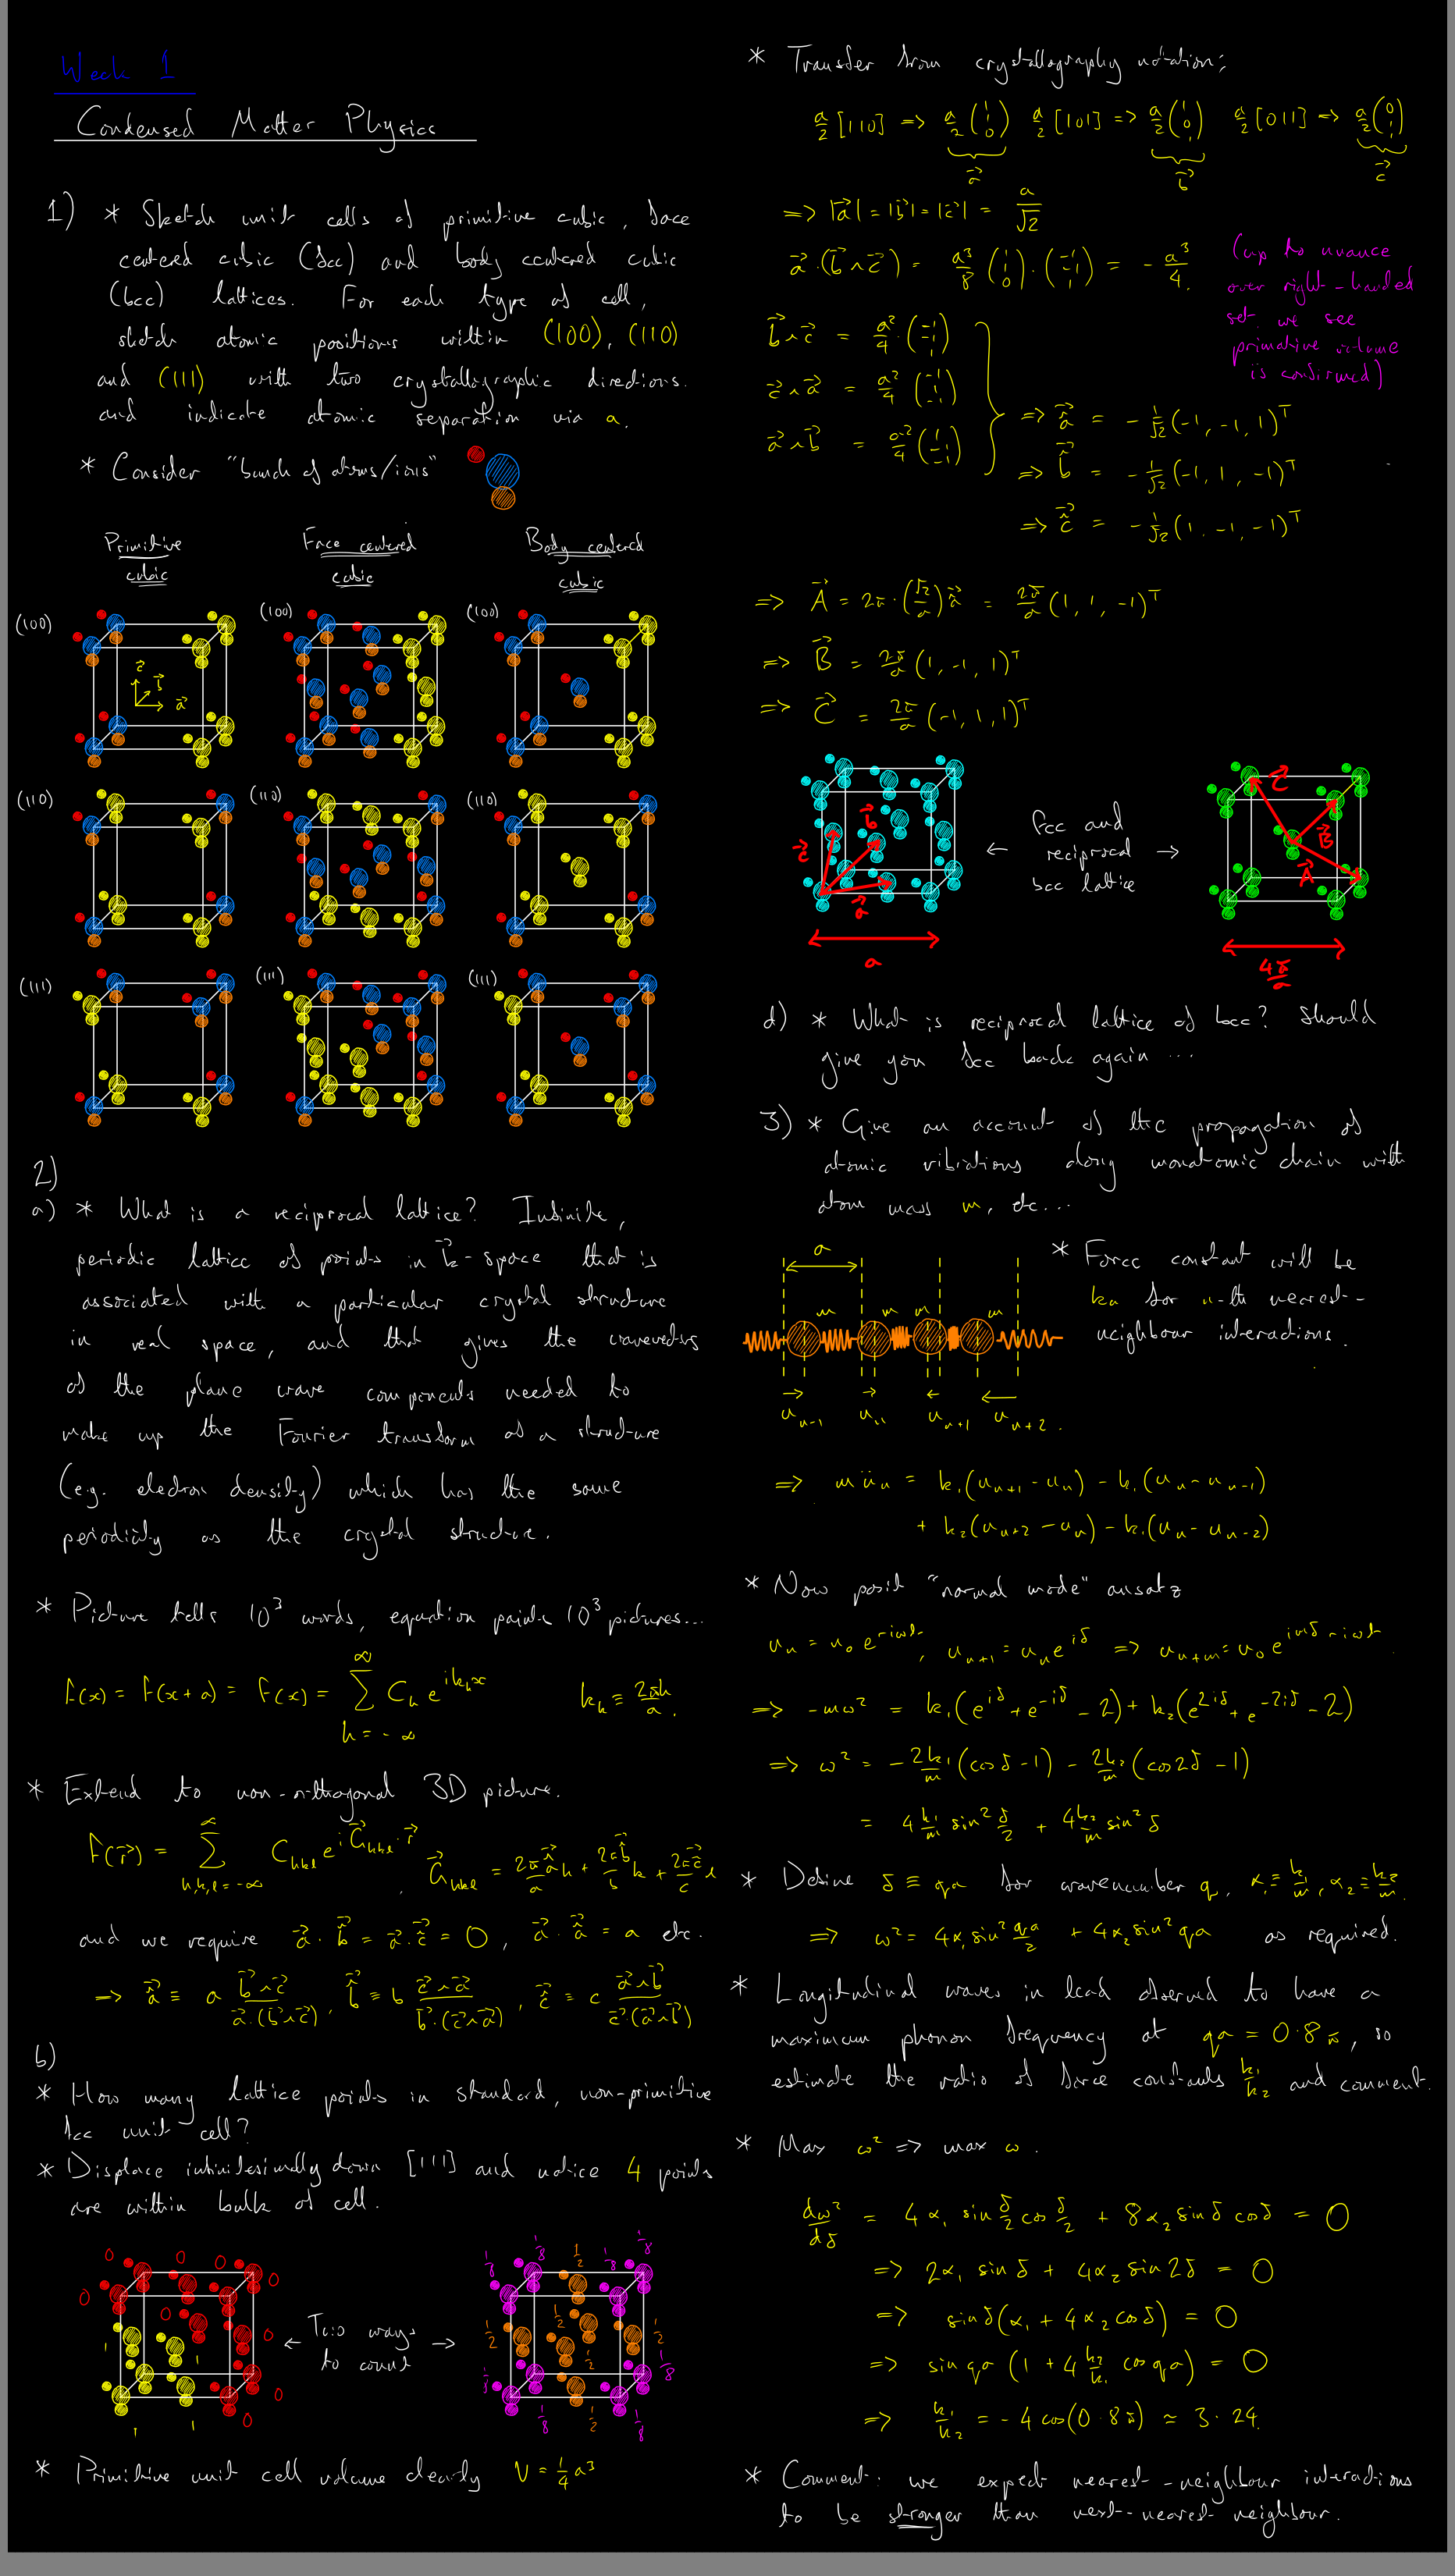 Week 1
Condensed Matter Physics
1) * Sketch unit cells of primitive cubic, face
centered cubic (fcc) and body centered cubic
(bcc) lattices. For each type of cell,
sketch atomic positions within (100), (110)
and (111) with two crystallographic directions.
and indicate atomic separation via a.
* Consider "bunch of atoms/ions"
Primitive cubic
Face centered cubic
Body centered cubic
(100) (100) (100)
c⃗ b⃗ a⃗
(110) (110) (110)
(111) (111) (111)
2)
a) * What is a reciprocal lattice? Infinite,
periodic lattice of points in k⃗-space that is
associated with a particular crystal structure
in real space, and that gives the wavevectors
of the plane wave components needed to
make up the Fourier transform of a structure
(e.g. electron density) which has the same
periodicity as the crystal structure.
* Picture tells 10³ words, equation paints 10³ pictures...
f(x) = f(x+a) = f(x) = ∑_{h=-∞}^{∞} C_h e^{ik_h x} k_h ≡ 2πh/a.
* Extend to non-orthogonal 3D picture.
f(r⃗) = ∑_{h,k,l=-∞}^{∞} C_hkl e^{iG⃗_hkl·r⃗}, G⃗_hkl = 2πâ⃗/a h + 2πb̂⃗/b k + 2πĉ⃗/c l
and we require a⃗·b̂⃗ = a⃗·ĉ⃗ = 0, a⃗·â⃗ = a etc.
⇒ â⃗ ≡ a b⃗∧c⃗/a⃗·(b⃗∧c⃗), b̂⃗ ≡ b c⃗∧a⃗/b⃗·(c⃗∧a⃗), ĉ⃗ ≡ c a⃗∧b⃗/c⃗·(a⃗∧b⃗)
b)
* How many lattice points in standard, non-primitive
fcc unit cell?
* Displace infinitesimally down [111] and notice 4 points
are within bulk of cell.
0 0 0 0 0 0 0 0 0 1 1 1 1
← Two ways to count →
1/8 1/8 1/2 1/8 1/8 1/2 1/2 1/2 1/2 1/8 1/8 1/8 1/2 1/8
* Primitive unit cell volume clearly V = ¼a³
* Transfer from crystallography notation:
a/2 [110] ⇒ a/2 (1 1 0) a⃗ a/2 [101] ⇒ a/2 (1 0 1) b⃗ a/2 [011] ⇒ a/2 (0 1 1) c⃗
⇒ |a⃗| = |b⃗| = |c⃗| = a/√2
a⃗·(b⃗∧c⃗) = a³/8 (1 1 0)·(-1 -1 1) = -a³/4.
(up to nuance
over right-handed
set, we see
primative volume
is confirmed)
b⃗∧c⃗ = a²/4 (-1 -1 1)
c⃗∧a⃗ = a²/4 (-1 1 -1)
a⃗∧b⃗ = a²/4 (1 -1 -1)
⇒ â⃗ = -1/√2 (-1, -1, 1)ᵀ
⇒ b̂⃗ = -1/√2 (-1, 1, -1)ᵀ
⇒ ĉ⃗ = -1/√2 (1, -1, -1)ᵀ
⇒ A⃗ = 2π·(√2/a) â⃗ = 2π/a (1, 1, -1)ᵀ
⇒ B⃗ = 2π/a (1, -1, 1)ᵀ
⇒ C⃗ = 2π/a (-1, 1, 1)ᵀ
c⃗ b⃗ a⃗ a
← fcc and reciprocal bcc lattice →
C⃗ B⃗ A⃗ 4π/a
d) * What is reciprocal lattice of bcc? Should
give you fcc back again ...
3) * Give an account of the propagation of
atomic vibrations along monatomic chain with
atom mass m, etc...
a
m m m m
u_{n-1} u_n u_{n+1} u_{n+2}.
* Force constant will be
kn for n-th nearest-
neighbour interactions.
⇒ mü_n = k₁(u_{n+1} - u_n) - k₁(u_n - u_{n-1})
+ k₂(u_{n+2} - u_n) - k₁(u_n - u_{n-2})
* Now posit "normal mode" ansatz
u_n = u₀e^{-iωt}, u_{n+1} = u_n e^{iδ} ⇒ u_{n+m} = u₀e^{imδ-iωt}.
⇒ -mω² = k₁(e^{iδ} + e^{-iδ} - 2) + k₂(e^{2iδ} + e^{-2iδ} - 2)
⇒ ω² = -2k₁/m (cosδ - 1) - 2k₂/m (cos2δ - 1)
= 4 k₁/m sin² δ/2 + 4 k₂/m sin² δ
* Define δ ≡ qa for wavenumber q, α₁ ≡ k₁/m, α₂ ≡ k₂/m.
⇒ ω² = 4α₁sin² qa/2 + 4α₂sin² qa as required.
* Longitudinal waves in lead observed to have a
maximum phonon frequency at qa = 0.8π, so
estimate the ratio of force constants k₁/k₂ and comment.
* Max ω² ⇒ max ω.
dω²/dδ = 4α₁ sin δ/2 cos δ/2 + 8α₂ sinδ cosδ = 0
⇒ 2α₁ sinδ + 4α₂ sin2δ = 0
⇒ sinδ(α₁ + 4α₂ cosδ) = 0
⇒ sin qa (1 + 4 k₂/k₁ cos qa) = 0
⇒ k₁/k₂ = -4cos(0.8π) ≃ 3.24.
* Comment: we expect nearest-neighbour interactions
to be stronger than next-nearest neighbour.